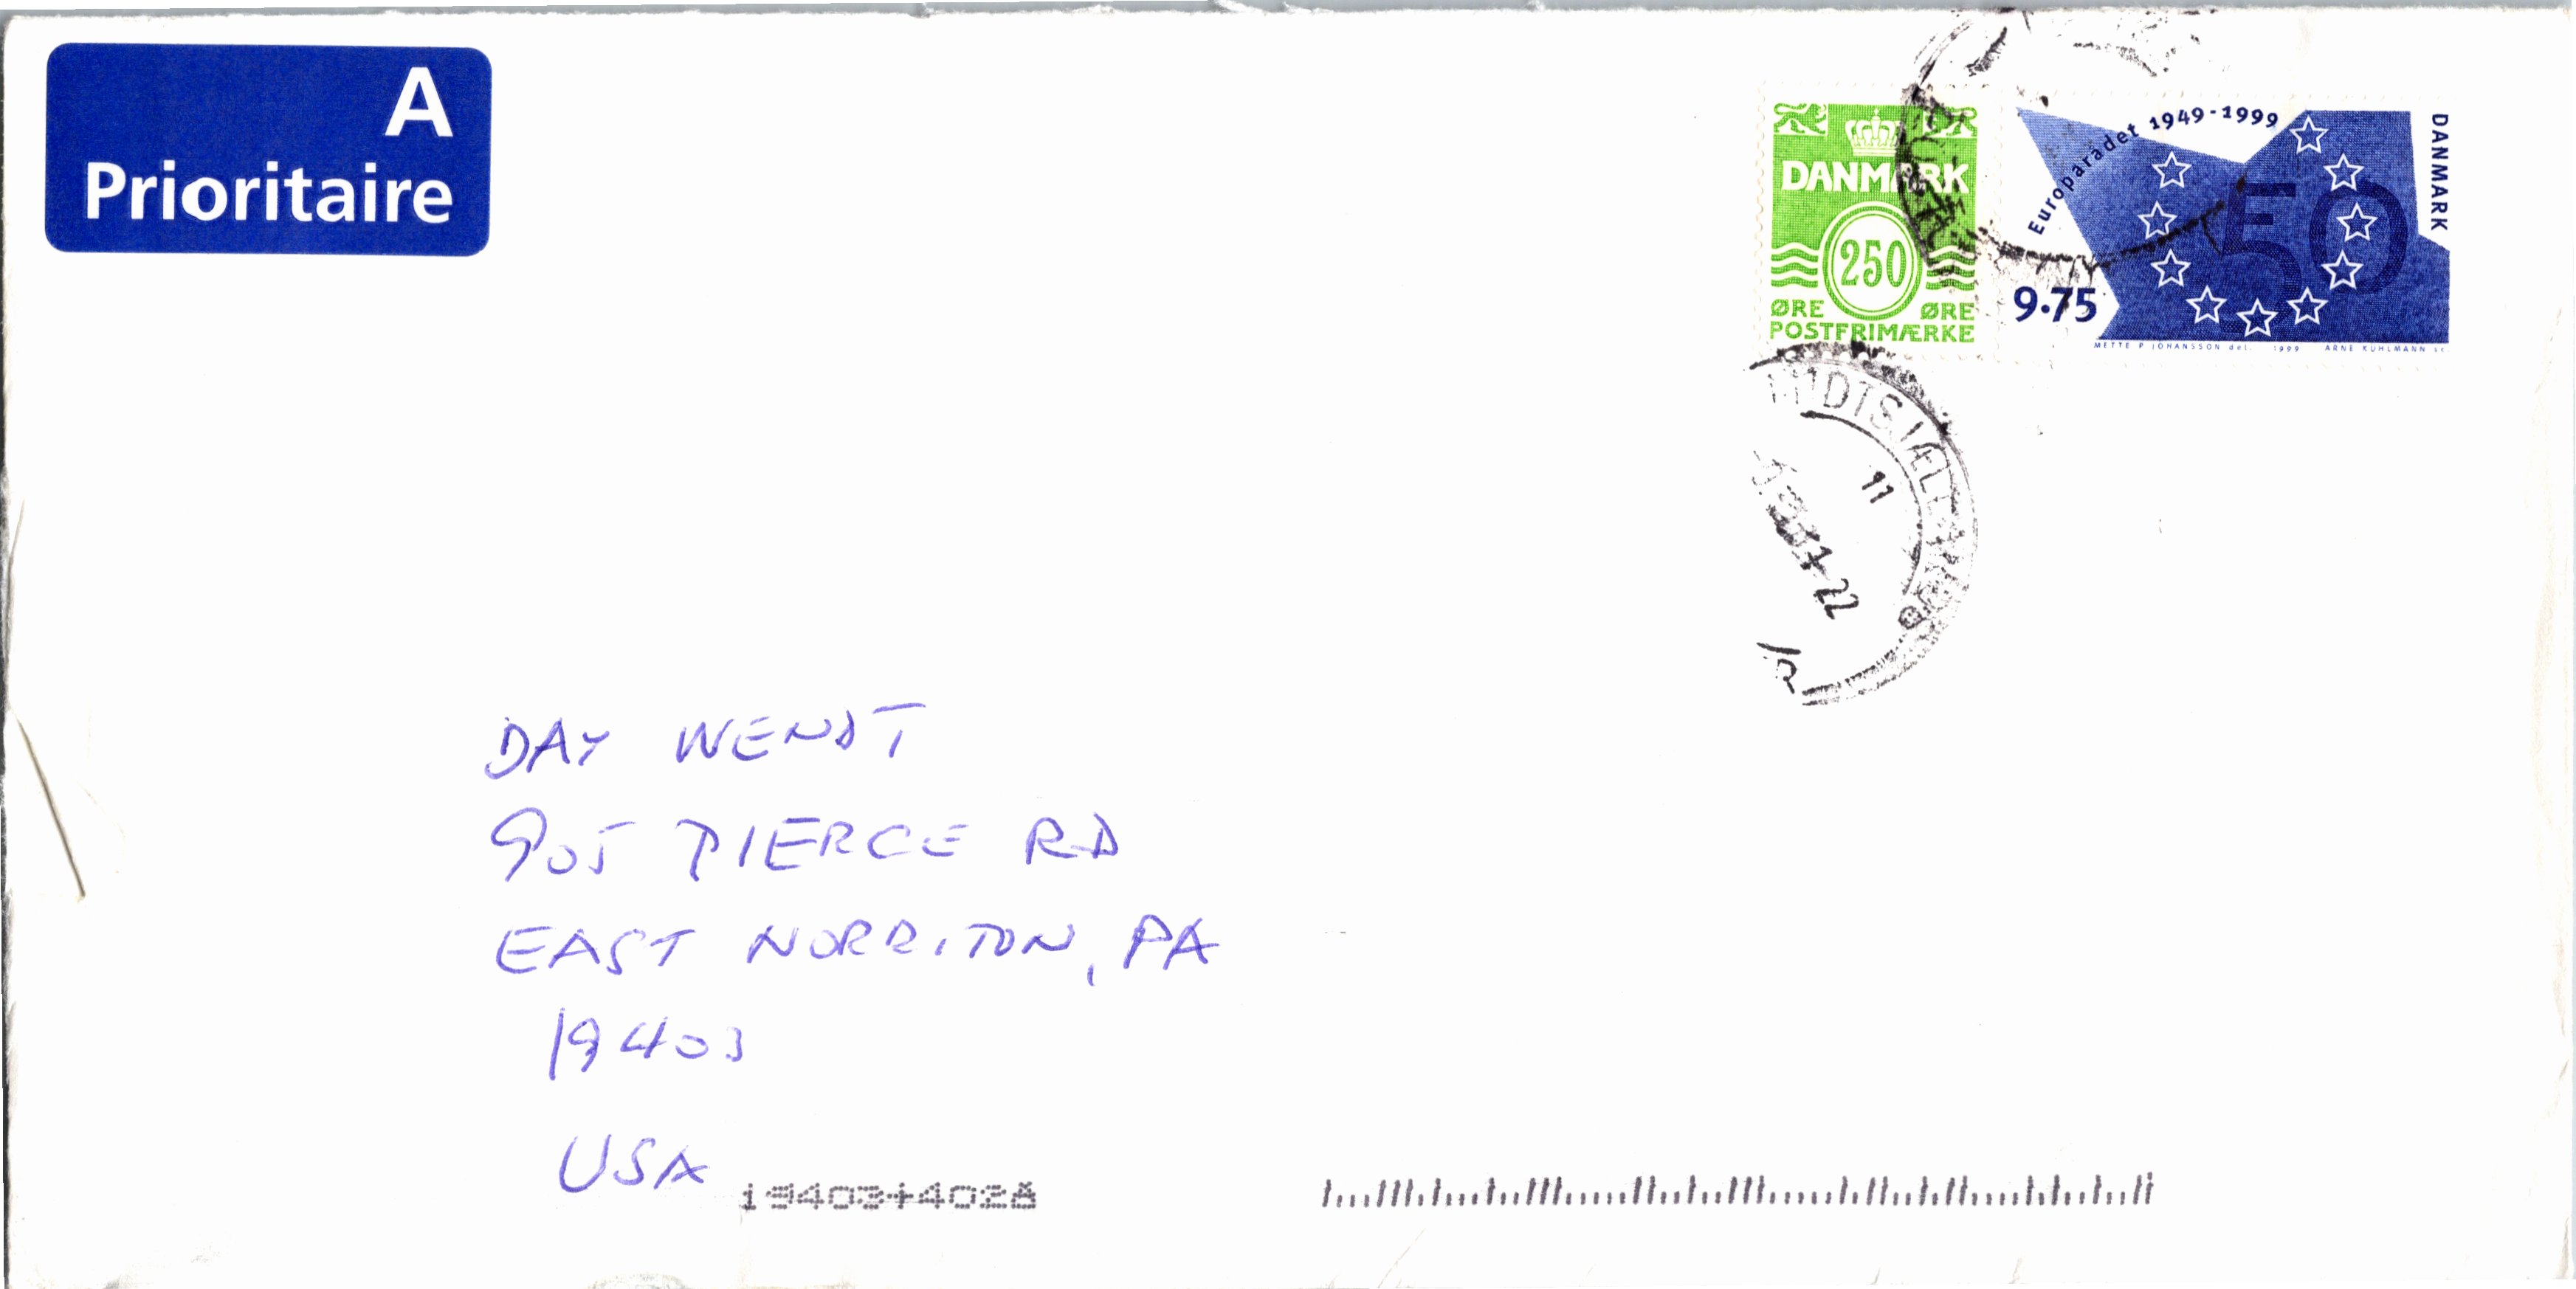 A
Prioritaire
DANMARK
250
ØRE ØRE
POSTFRIMÆRKE
Europarådet 1949-1999
DANMARK
50
9.75
METTE P JOHANSSON del. 1999 ARNE KÜHLMANN sc.
22
DAY WENDT
905 PIERCE RD
EAST NORRITON, PA
19403
USA
19403+4028